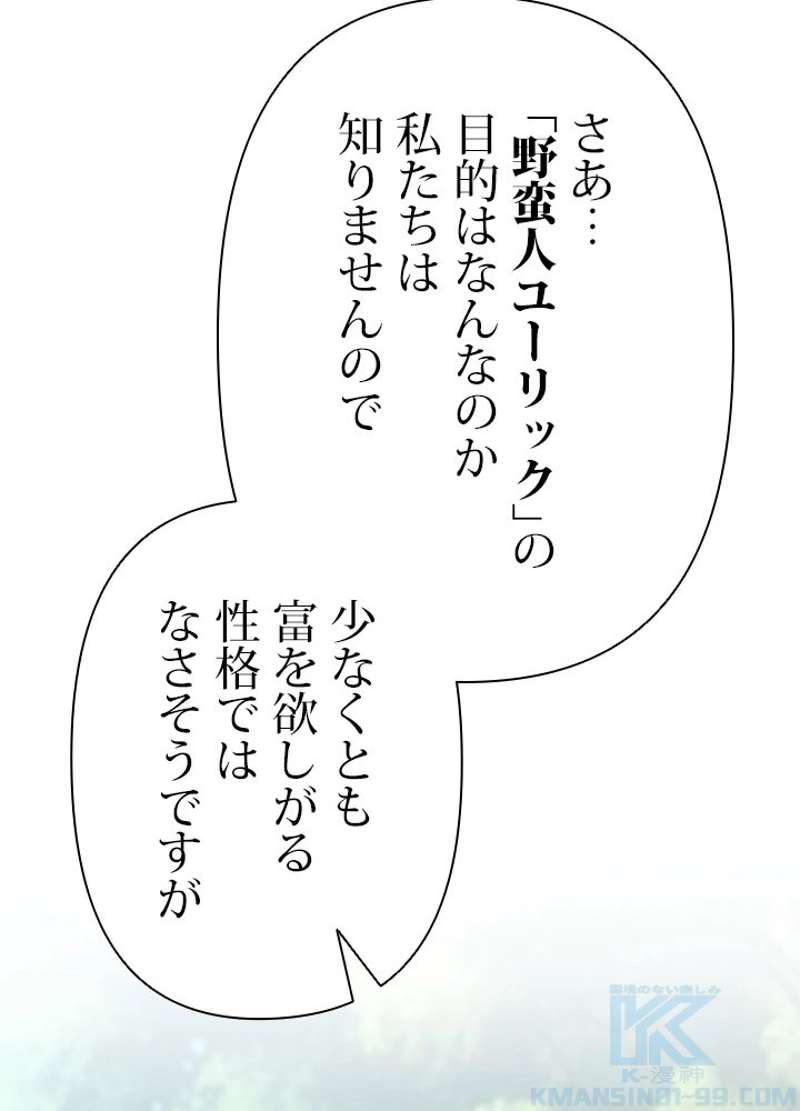 さあ…
「野蛮人ユーリック」の
目的はなんなのか
私たちは
知りませんので
少なくとも
富を欲しがる
性格では
なさそうですが
国境のない楽しみ
K-漫神
KMANSIN01-99.COM